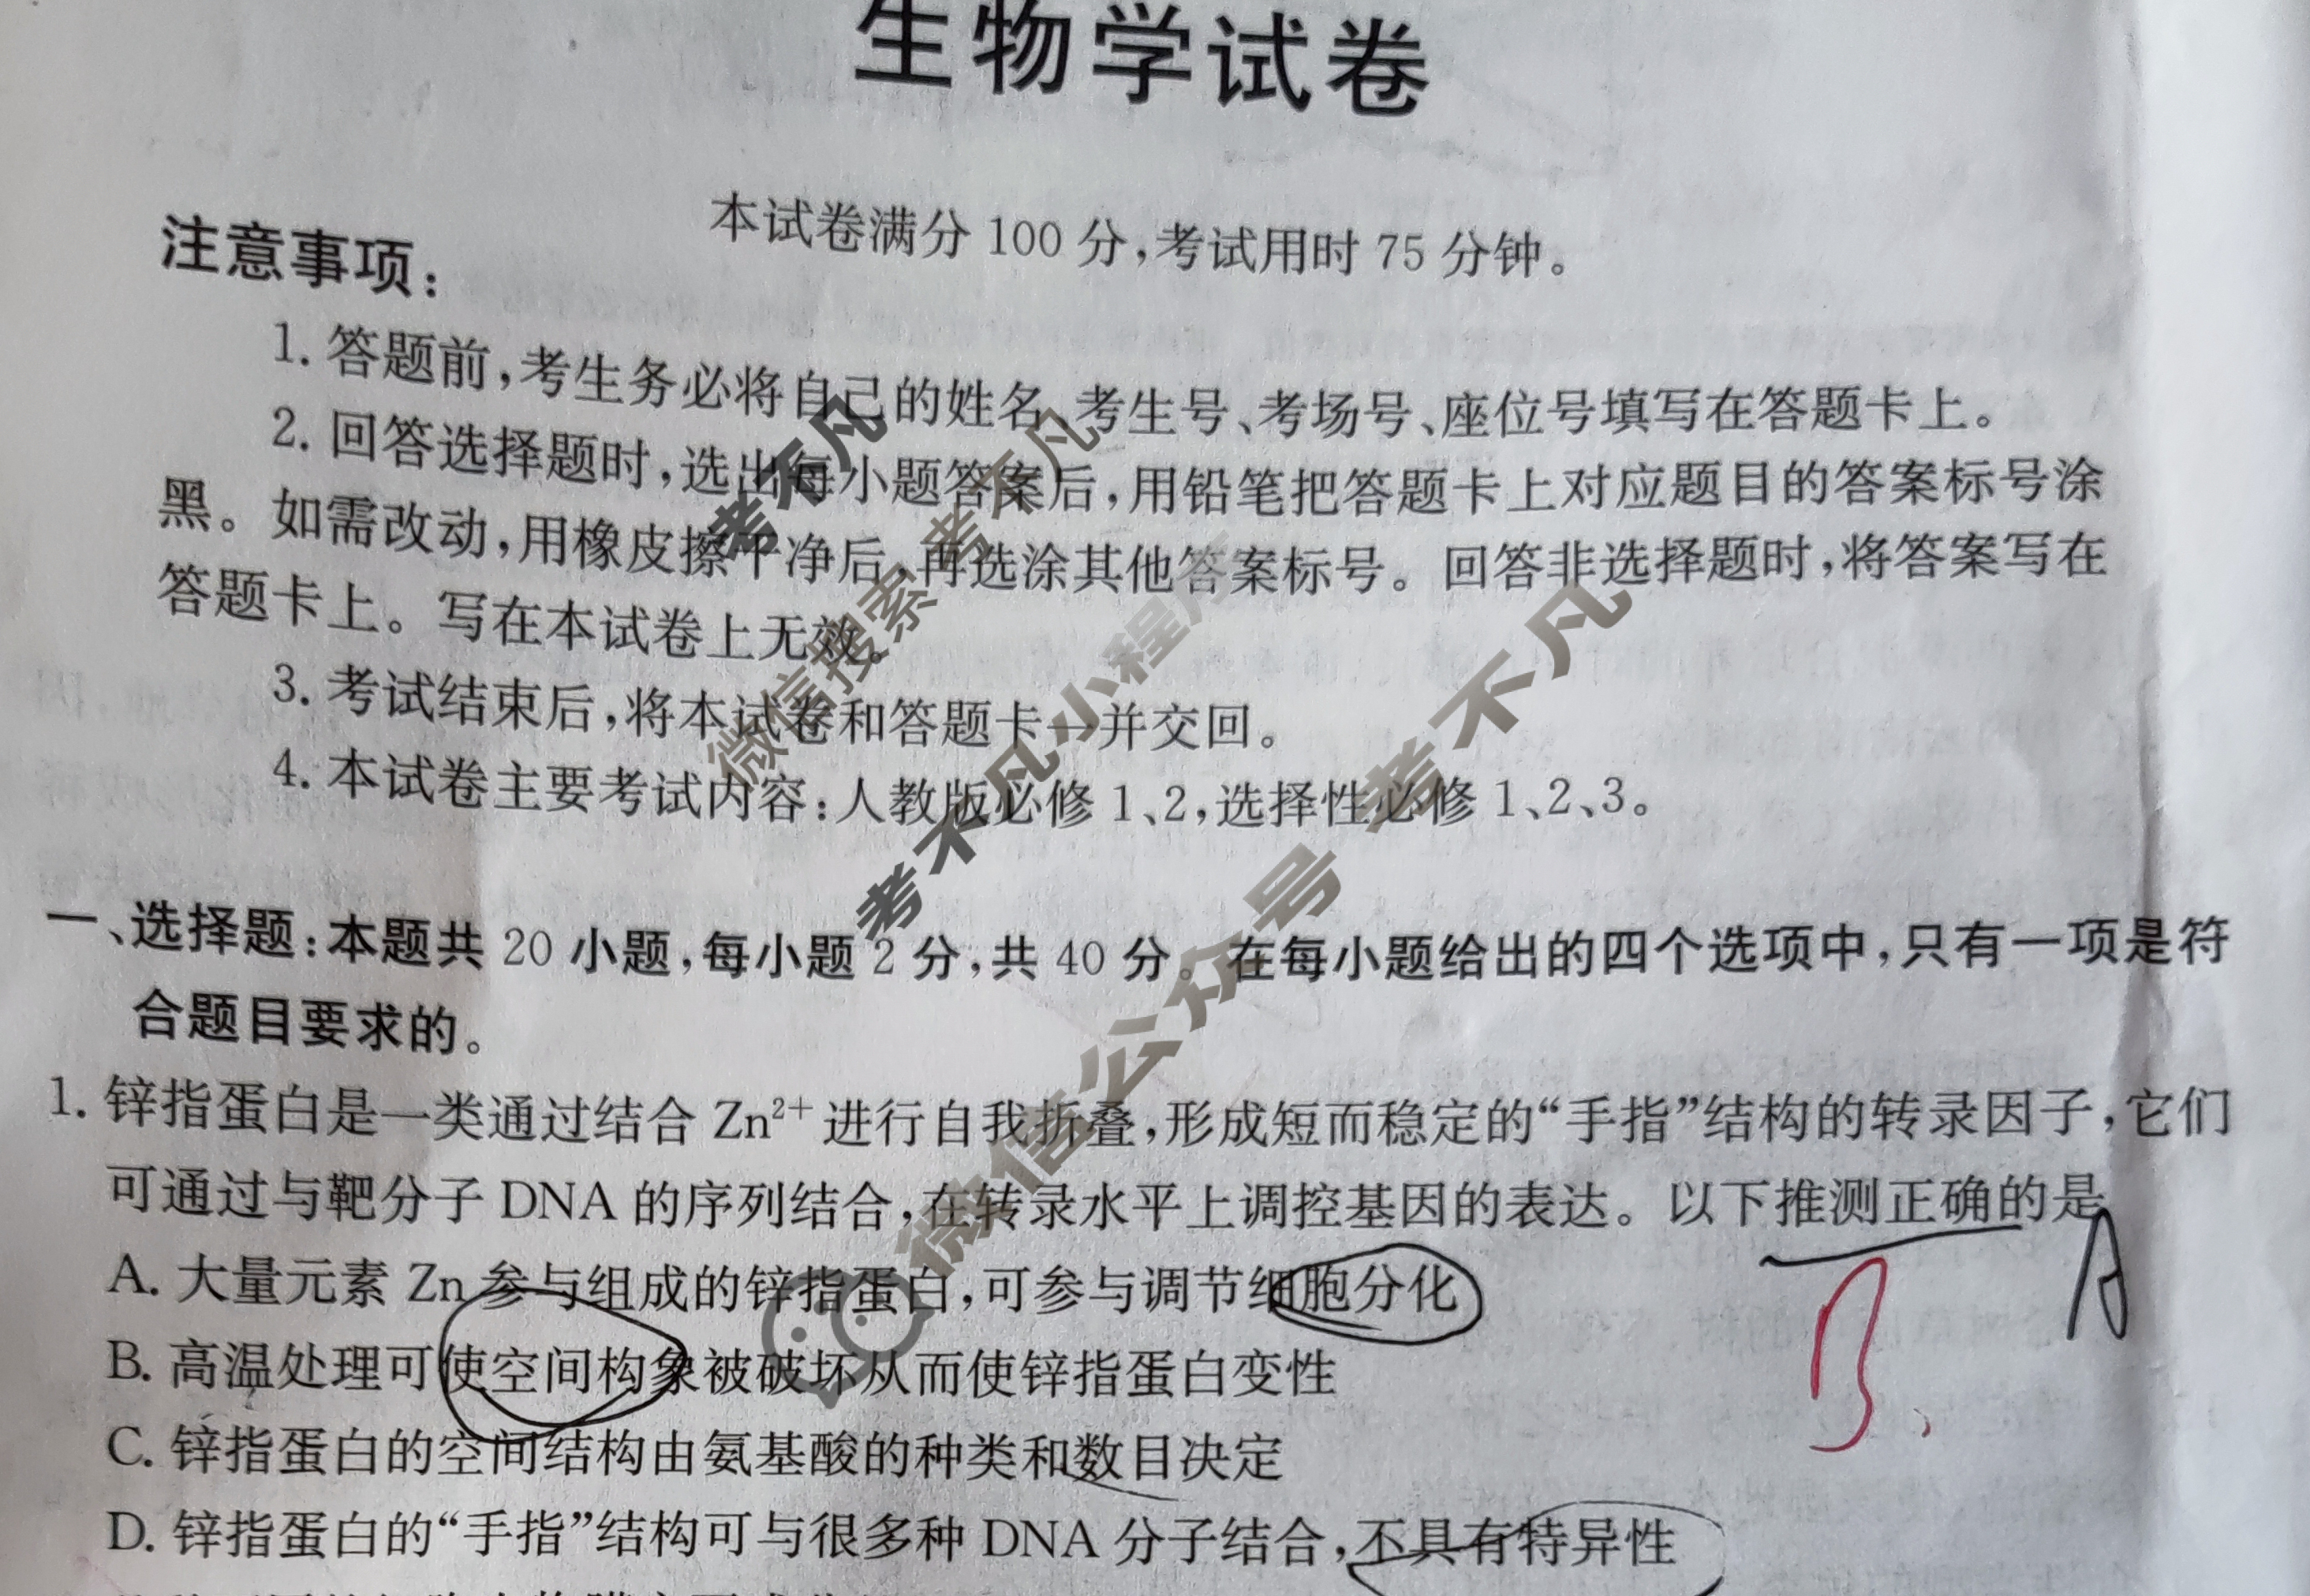 生物学试卷
本试卷满分 100 分,考试用时 75 分钟。
注意事项:
1. 答题前,考生务必将自己的姓名、考生号、考场号、座位号填写在答题卡上。
2. 回答选择题时,选出每小题答案后,用铅笔把答题卡上对应题目的答案标号涂
黑。如需改动,用橡皮擦干净后,再选涂其他答案标号。回答非选择题时,将答案写在
答题卡上。写在本试卷上无效。
3. 考试结束后,将本试卷和答题卡一并交回。
4. 本试卷主要考试内容:人教版必修 1、2,选择性必修 1、2、3。
一、选择题:本题共 20 小题,每小题 2 分,共 40 分。在每小题给出的四个选项中,只有一项是符
合题目要求的。
1. 锌指蛋白是一类通过结合 Zn²⁺ 进行自我折叠,形成短而稳定的“手指”结构的转录因子,它们
可通过与靶分子 DNA 的序列结合,在转录水平上调控基因的表达。以下推测正确的是
A
A. 大量元素 Zn 参与组成的锌指蛋白,可参与调节细胞分化
B. 高温处理可使空间构象被破坏从而使锌指蛋白变性
B
C. 锌指蛋白的空间结构由氨基酸的种类和数目决定
D. 锌指蛋白的“手指”结构可与很多种 DNA 分子结合,不具有特异性
考不凡
微信搜索 考不凡
考不凡小程序
微信公众号 考不凡